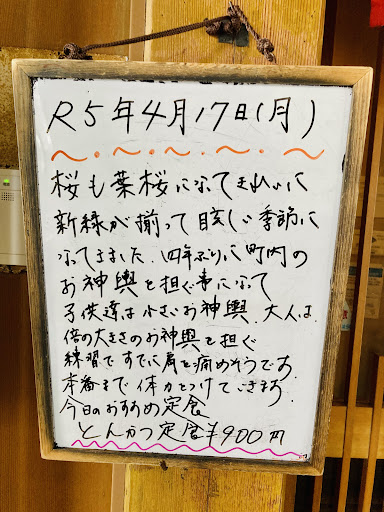 R5年4月17日(月)
桜も葉桜になってきれいに
新緑が揃って眩しい季節に
なってきました。四年ぶりに町内の
お神輿を担ぐ事になって
子供達は小さいお神輿、大人は
倍の大きさのお神輿を担ぐ
練習ですでに肩を痛めそうです。
本番まで体力つけていきます。
今日のおすすめ定食
とんかつ定食¥900円